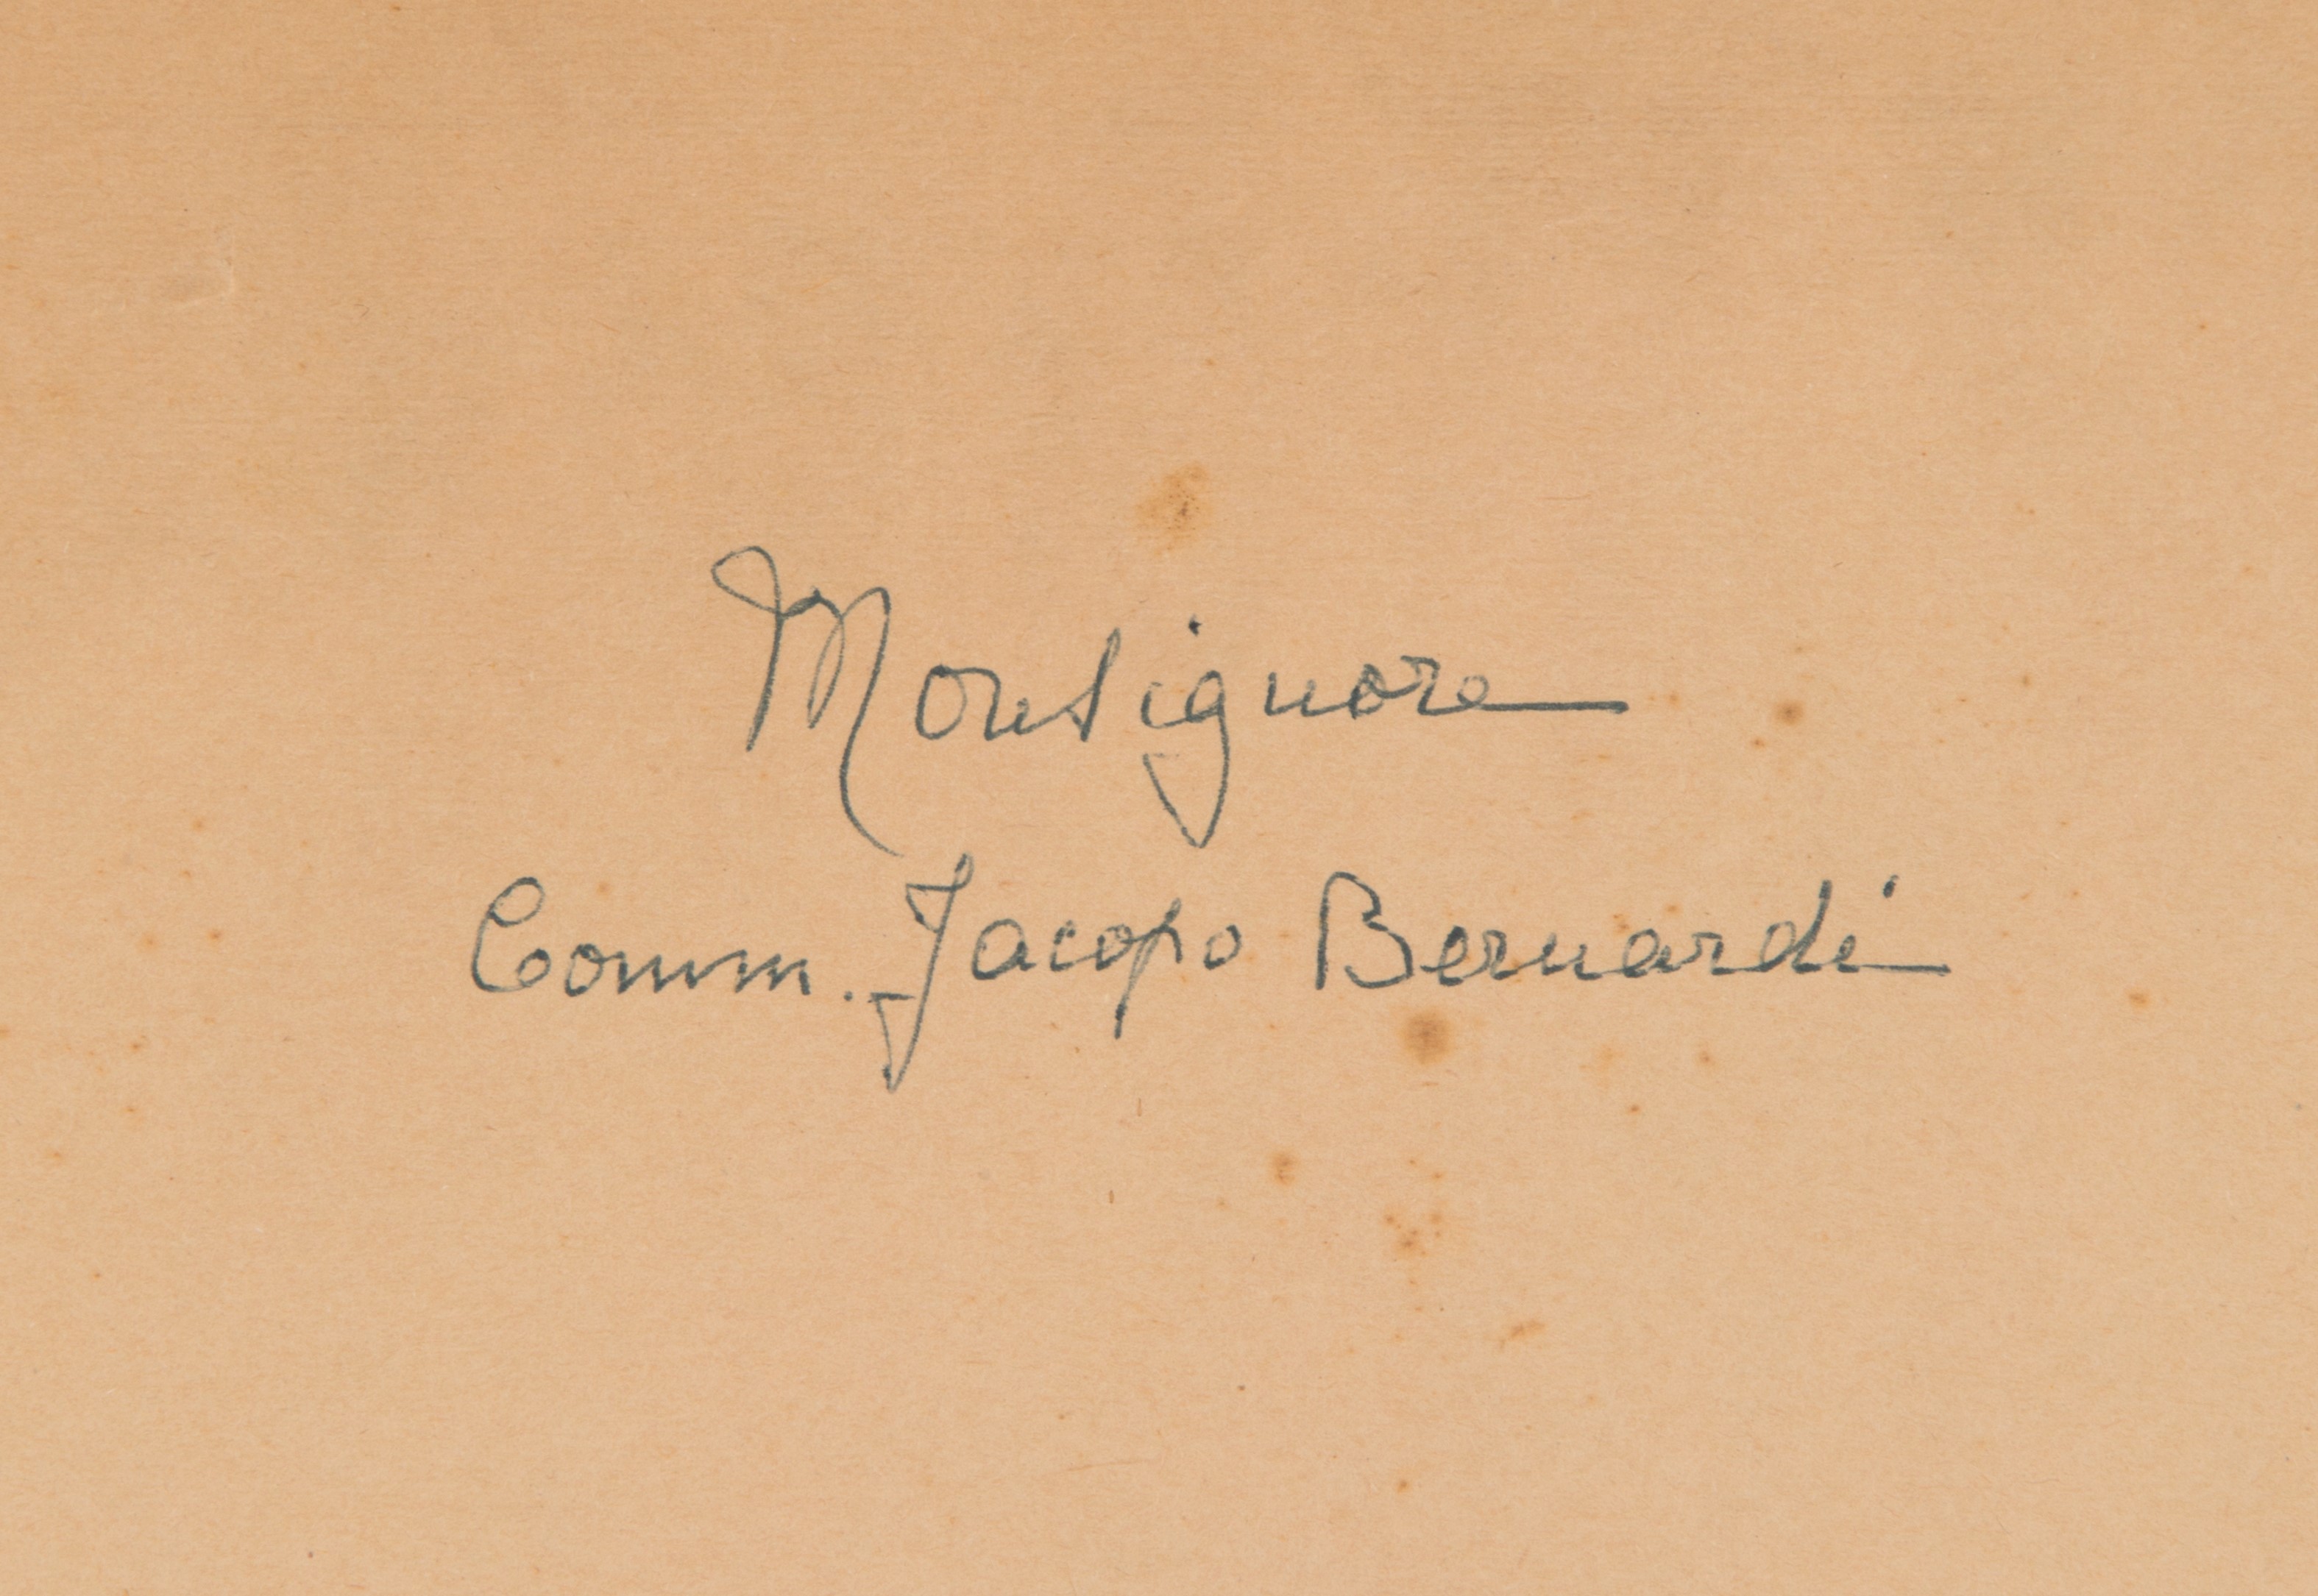 Monsignore
Comm. Jacopo Bernardi